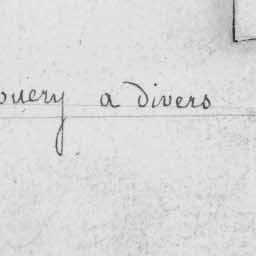 ouery a divers